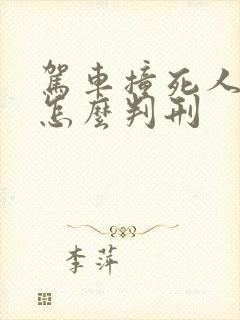 駕車撞死人
怎麼判刑
李萍